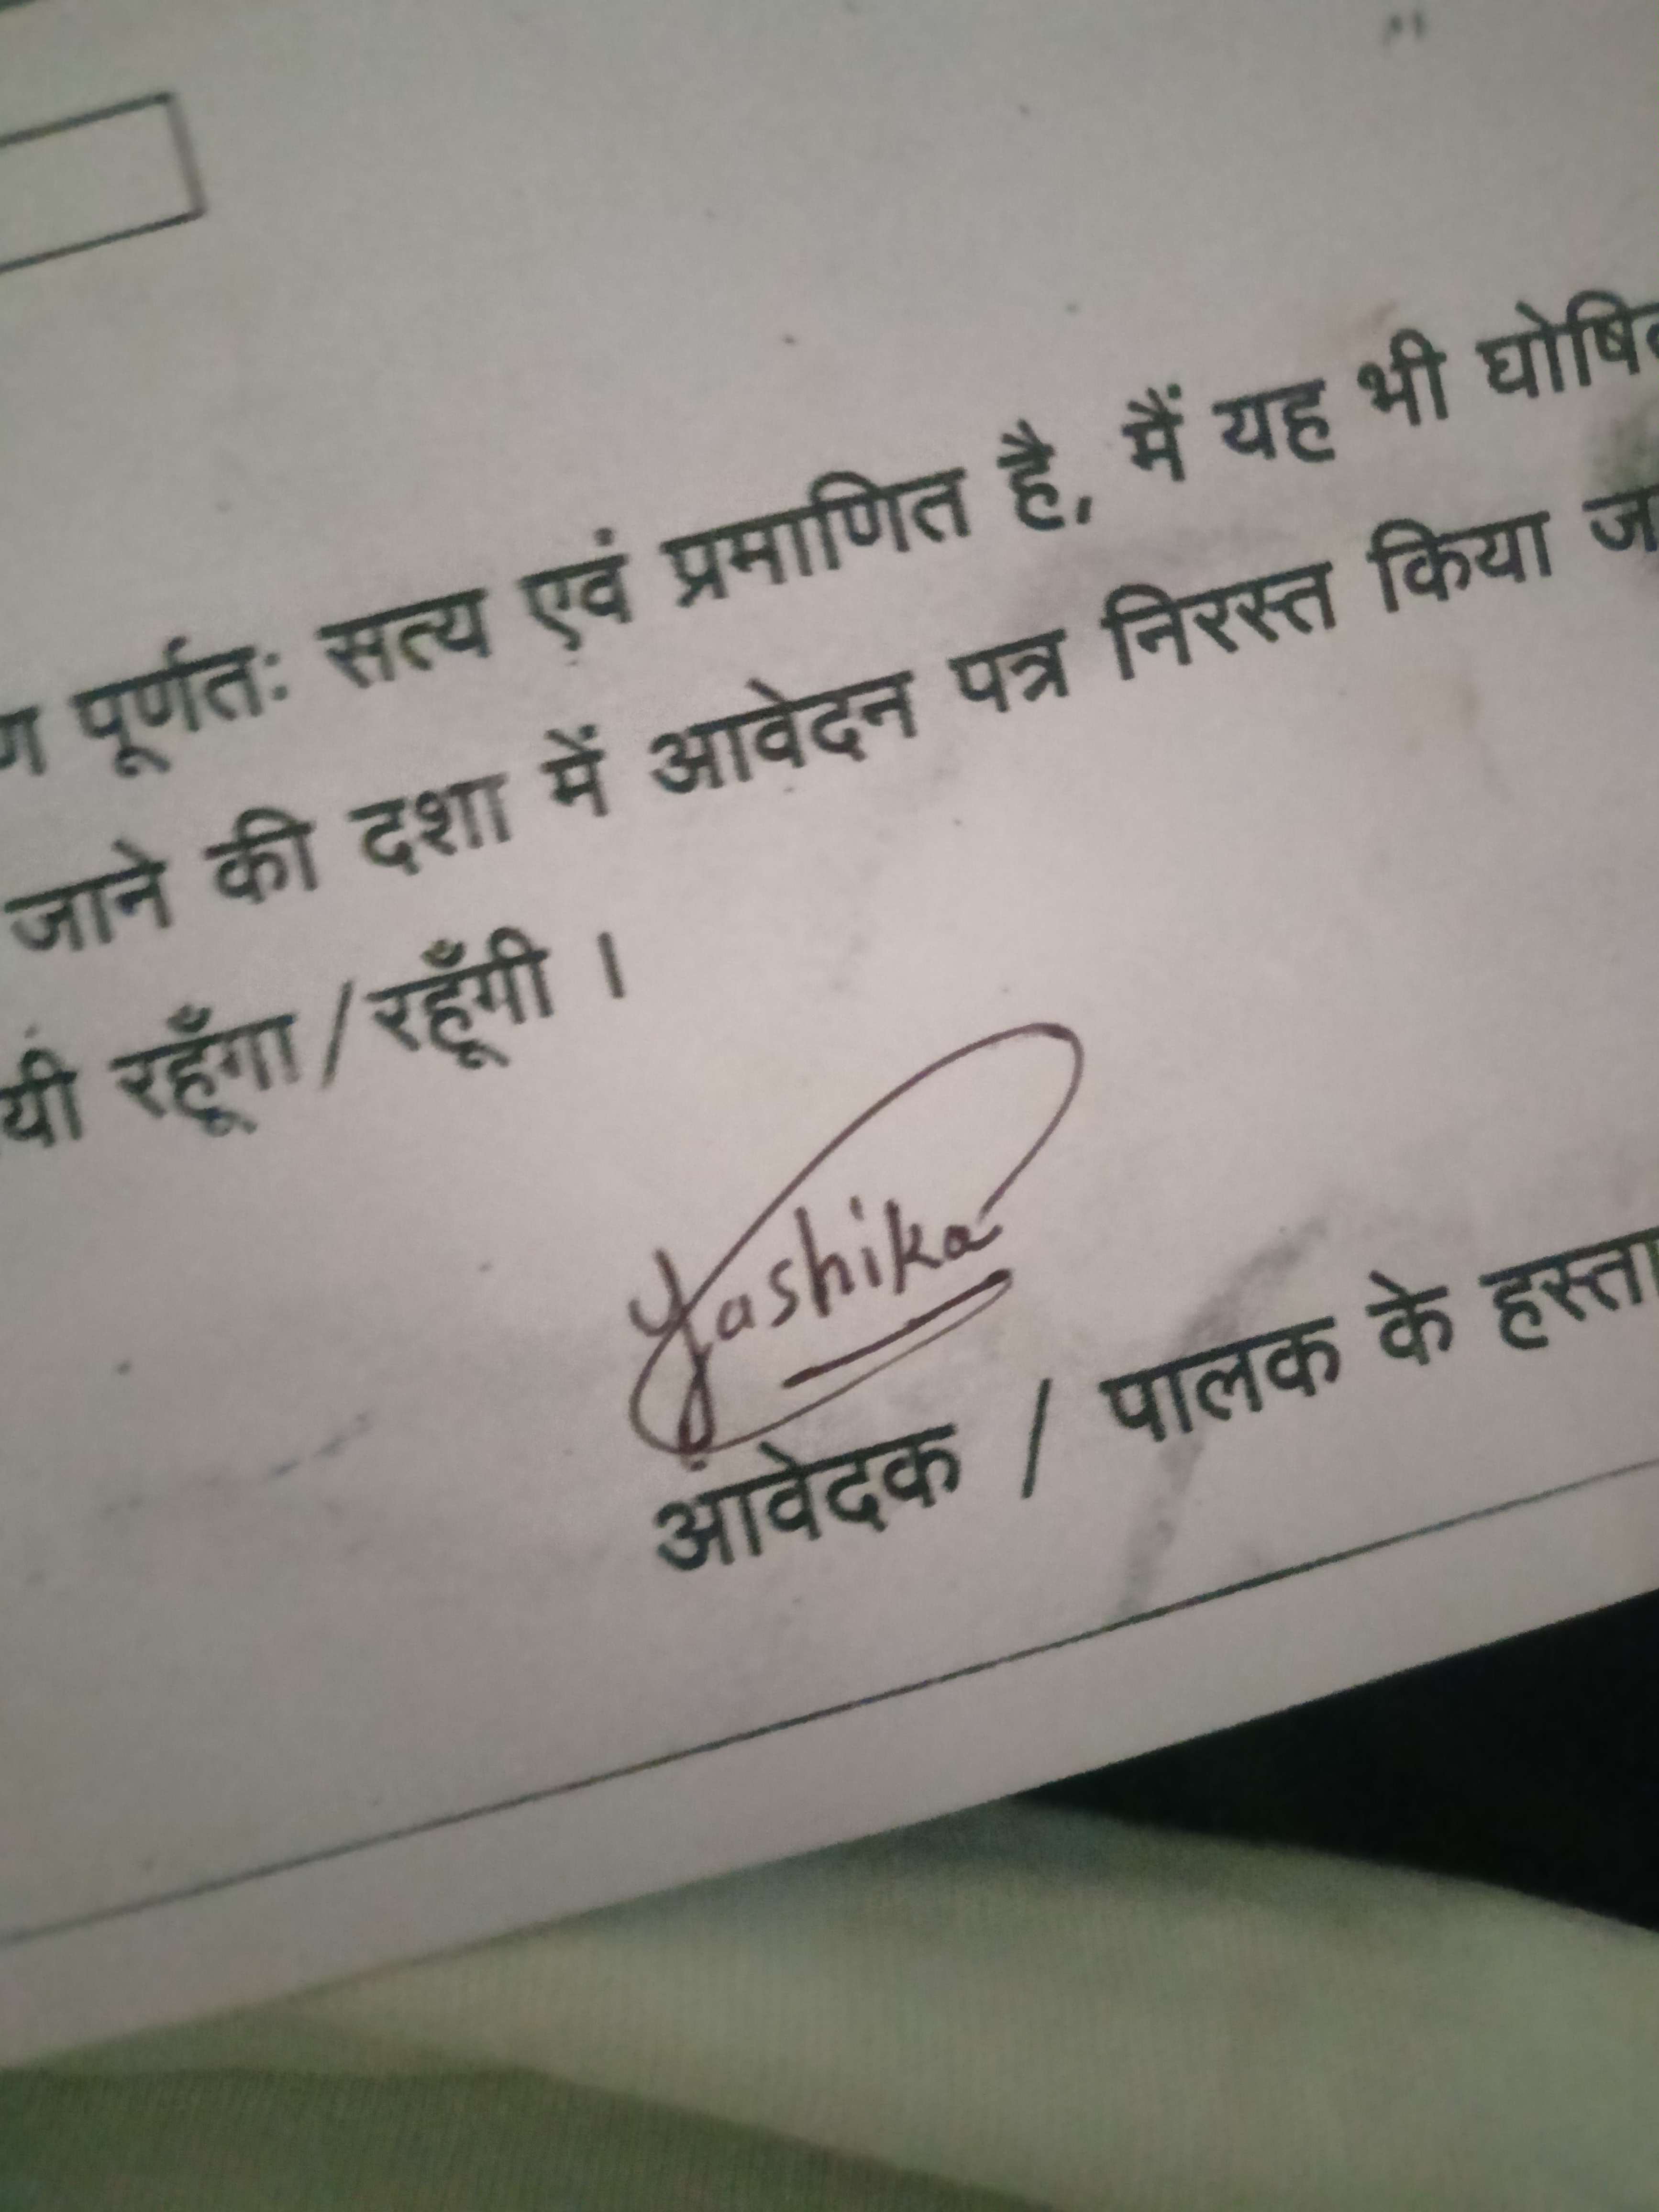 पूर्णतः सत्य एवं प्रमाणित है, मैं यह भी
जाने की दशा में आवेदन पत्र निरस्त किया
रहूँगा/रहूँगी ।
Yashika
आवेदक / पालक के